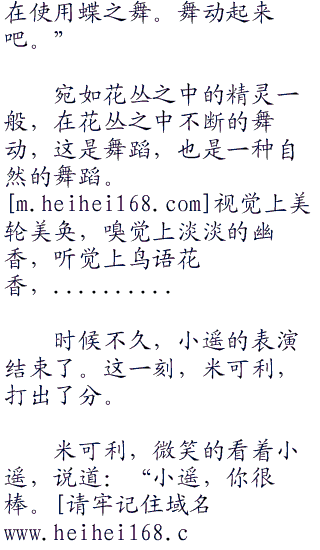 在使用蝶之舞。舞动起来
吧。”
宛如花丛之中的精灵一
般，在花丛之中不断的舞
动，这是舞蹈，也是一种自
然的舞蹈。
[m.heihei168.com]视觉上美
轮美奂，嗅觉上淡淡的幽
香，听觉上鸟语花
香，..........
时候不久，小遥的表演
结束了。这一刻，米可利，
打出了分。
米可利，微笑的看着小
遥，说道：“小遥，你很
棒。[请牢记住域名
www.heihei168.c